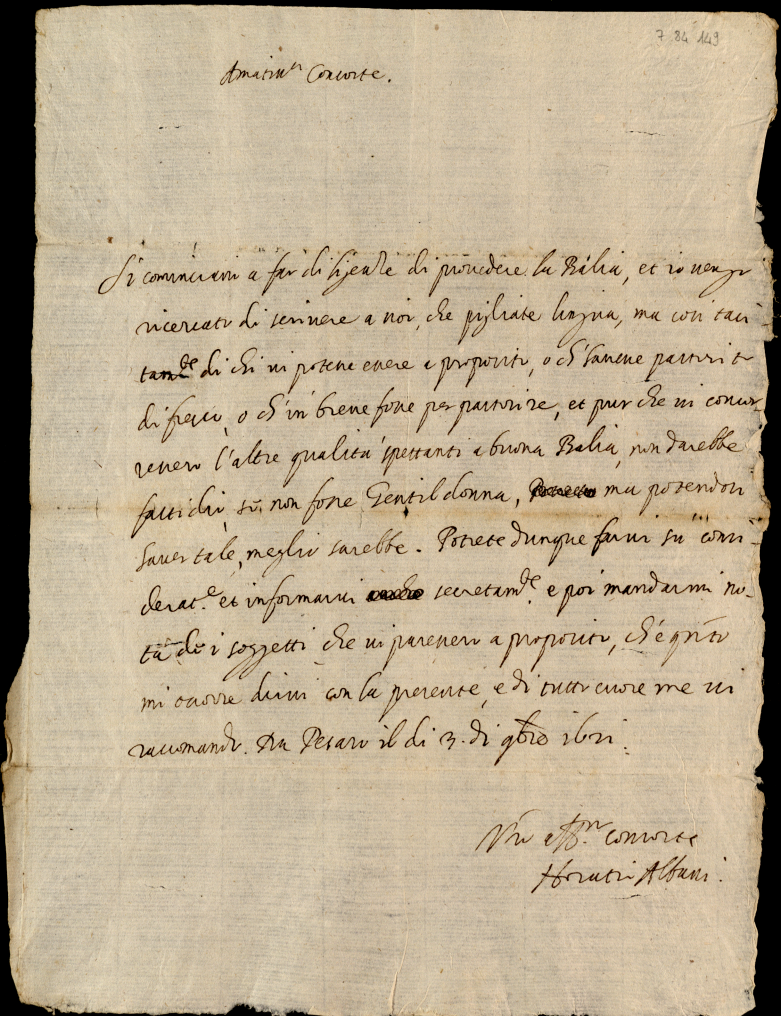 7 84 149
Amatiss.ma Consorte.
Si cominciano a far diligenze di provedere la Balia, et io vengo
ricercato di scrivere a voi, che pigliate lingua, ma con taci
tam.te di chi vi potesse essere a proposito, o ch'havesse partorito
di fresco, o ch'in breve fosse per partorire, et pur che vi concor
ressero l'altre qualità spettanti a buona Balia, non darebbe
fastidio, se non fosse Gentildonna, ma potendosi
haver tale, meglio sarebbe. Potrete dunque farvi su consi-
derat.e et informarvi secretam.te e poi mandarmi no-
ta de i soggetti che vi paressero a proposito, ch'è q.to
mi occorre dirvi con la presente, e di tutto cuore me vi
raccomando. Da Pesaro il dì 3. di 9bre 1621.
V.ro aff.mo consorte
Horatio Albani.